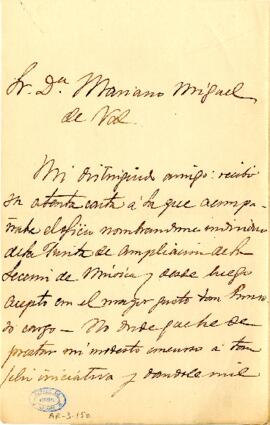 Sr. Dn. Mariano Miguel
de Val.
Mi distinguido amigo: recibi
su atenta carta á la que acompa-
ñaba el oficio nombrandome individuo
de la Junta de ampliacion de la
Seccion de Música y desde luego
acepto con el mayor gusto tan honro-
so cargo - No dude que he de
prestar mi modesto concurso a tan
feliz iniciativa y dandole mil
AR-3-150